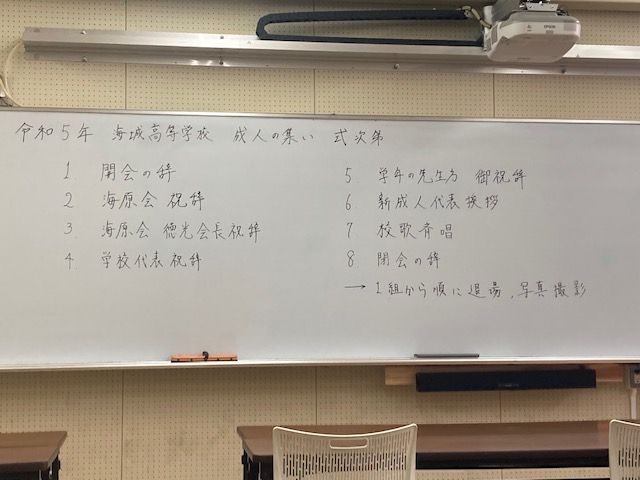 令和5年 海城高等学校 成人の集い 式次第
1 開会の辞
2 海原会 祝辞
3. 海原会 徳光会長祝辞
4. 学校代表祝辞
5 学年の先生方 御祝辞
6 新成人代表挨拶
7 校歌斉唱
8. 閉会の辞
→ 1組から順に退場、写真撮影